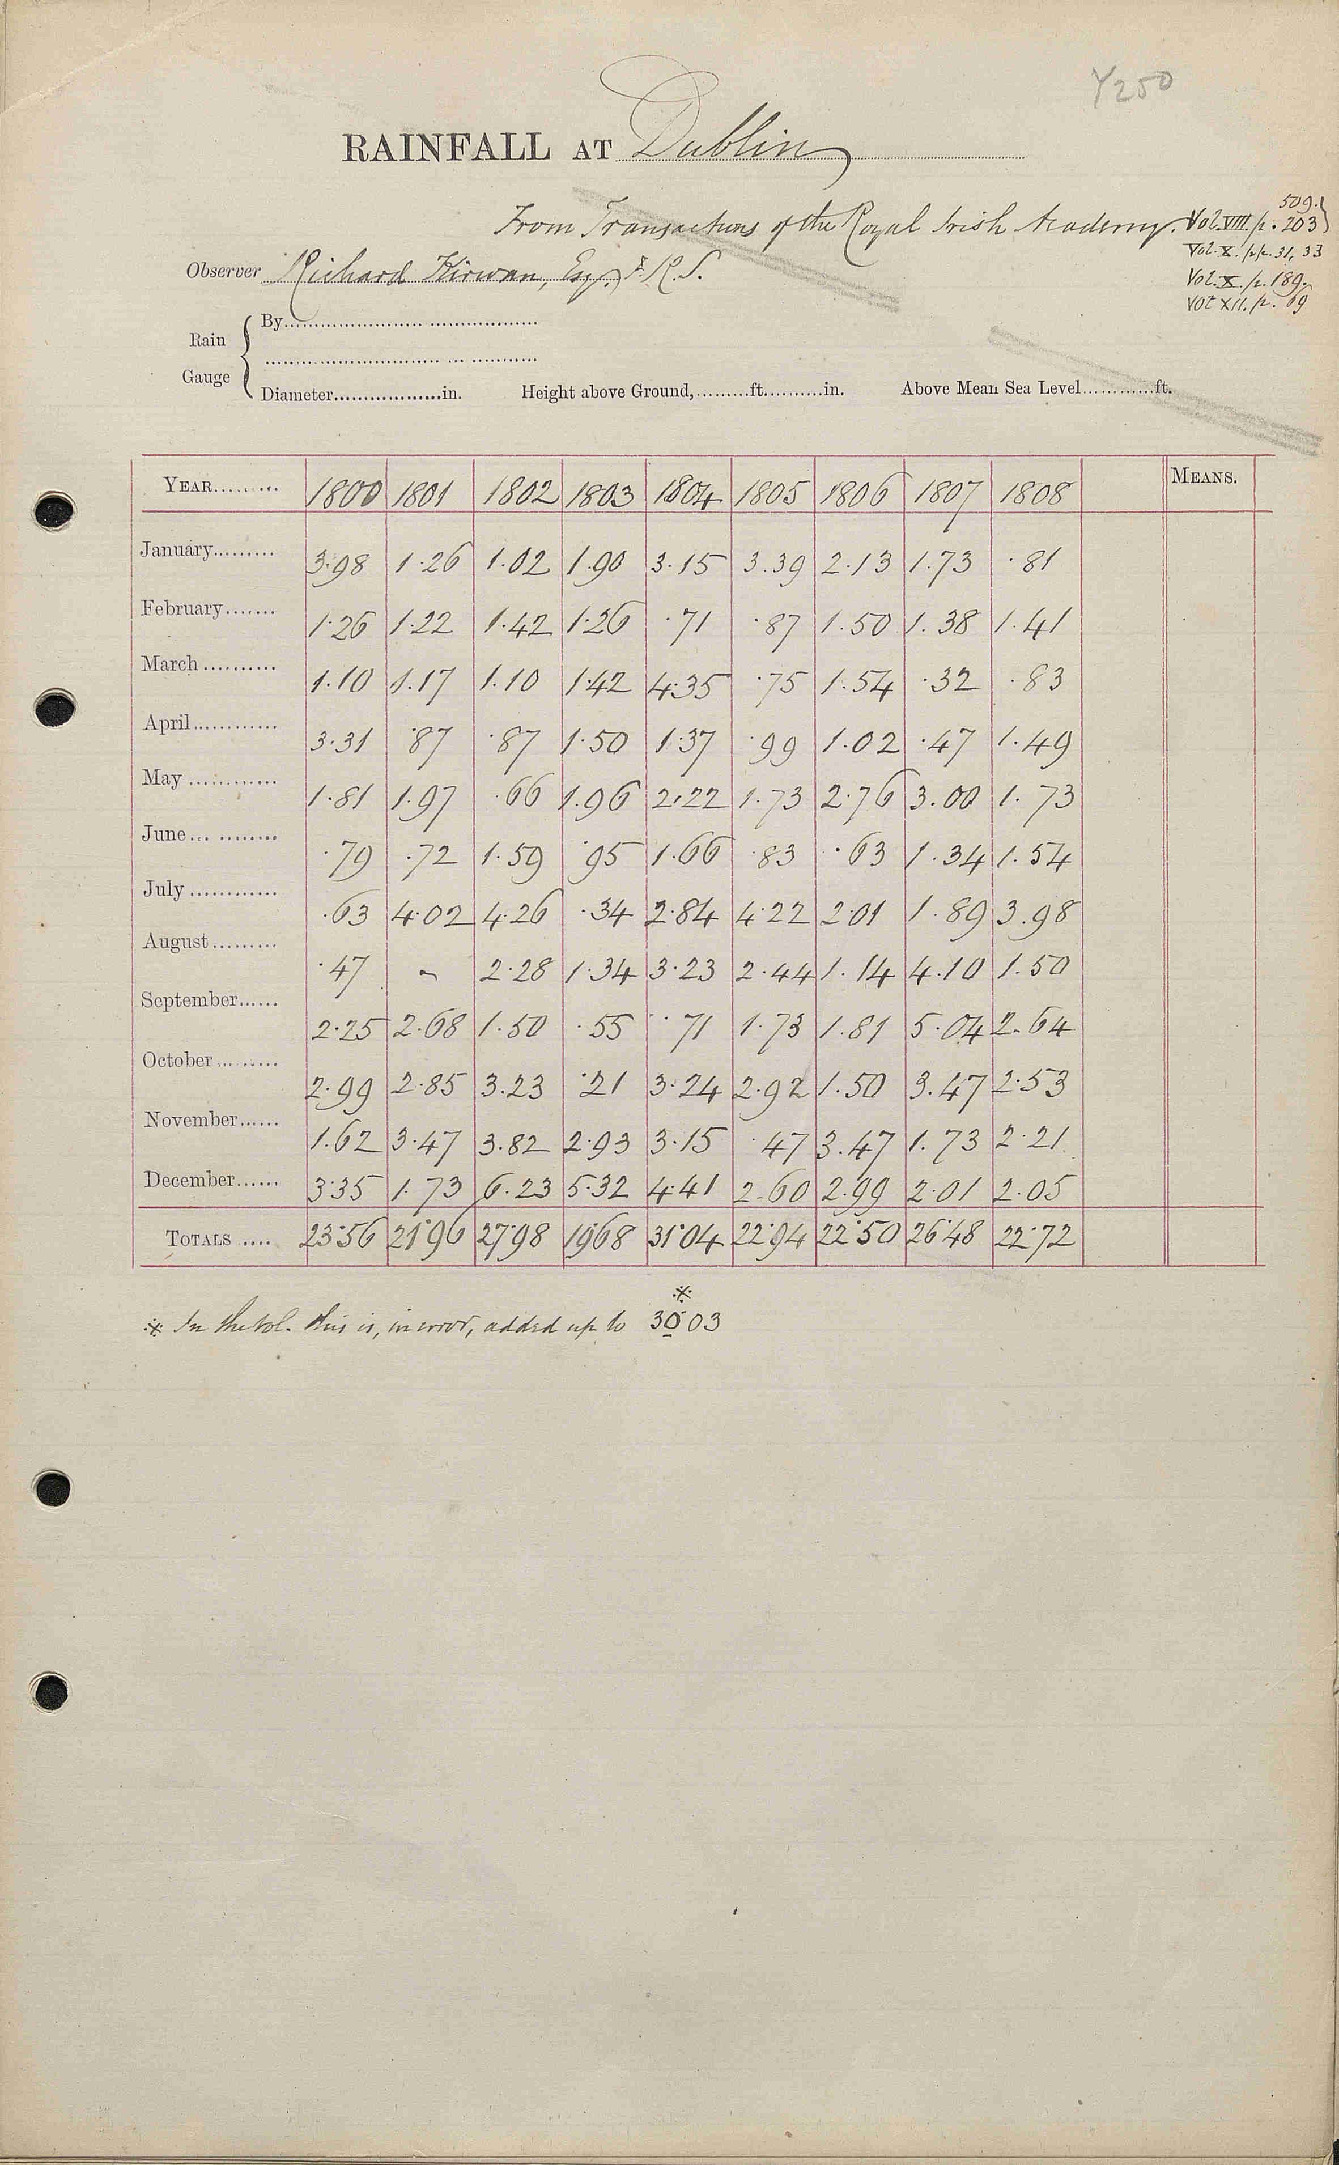 Y250
RAINFALL AT Dublin
From Transactions of the Royal Irish Academy. Vol. VIII. p. 203} 509.
Vol. X. pp. 31, 33
Observer Richard Kirwan, Esq., F.R.S.
Vol. X. p. 189.
Vol XII. p. 69
Rain Gauge { By
Diameter in. Height above Ground, ft. in. Above Mean Sea Level ft.
YEAR 1800 1801 1802 1803 1804 1805 1806 1807 1808 MEANS.
January 3.98 1.26 1.02 1.90 3.15 3.39 2.13 1.73 .81
February 1.26 1.22 1.42 1.26 .71 .87 1.50 1.38 1.41
March 1.10 1.17 1.10 1.42 4.35 .75 1.54 .32 .83
April 3.31 .87 .87 1.50 1.37 .99 1.02 .47 1.49
May 1.81 1.97 .66 1.96 2.22 1.73 2.76 3.00 1.73
June .79 .72 1.59 .95 1.66 .83 .63 1.34 1.54
July .63 4.02 4.26 .34 2.84 4.22 2.01 1.89 3.98
August .47 - 2.28 1.34 3.23 2.44 1.14 4.10 1.50
September 2.25 2.68 1.50 .55 .71 1.73 1.81 5.04 2.64
October 2.99 2.85 3.23 .21 3.24 2.92 1.50 3.47 2.53
November 1.62 3.47 3.82 2.93 3.15 .47 3.47 1.73 2.21
December 3.35 1.73 6.23 5.32 4.41 2.60 2.99 2.01 2.05
TOTALS 23.56 21.96 27.98 19.68 31.04 22.94 22.50 26.48 22.72
※ In the vol. this is, in error, added up to 30.03 ※